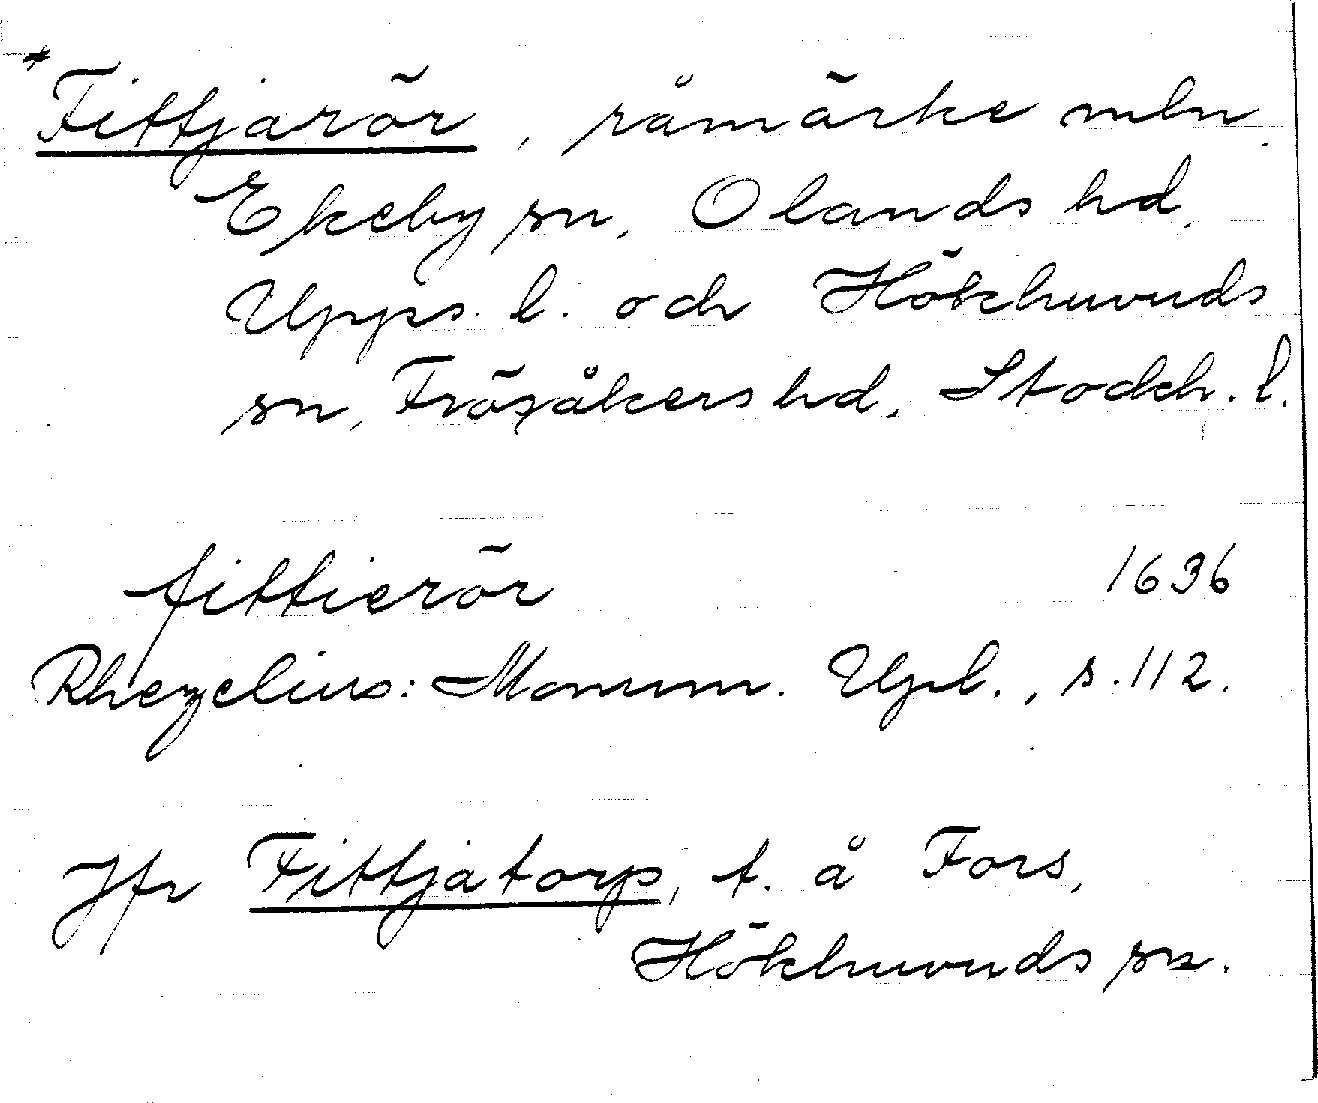 *Fittjarör, råmärke mln.
Ekeby sn, Olands hd,
Upps. l. och Hökhuvuds
sn, Frösåkers hd, Stockh. l.
fittierör 1636
Rhezelius: Monum. Upl., s. 112.
Jfr Fittjatorp, t. å Fors,
Hökhuvuds sn.